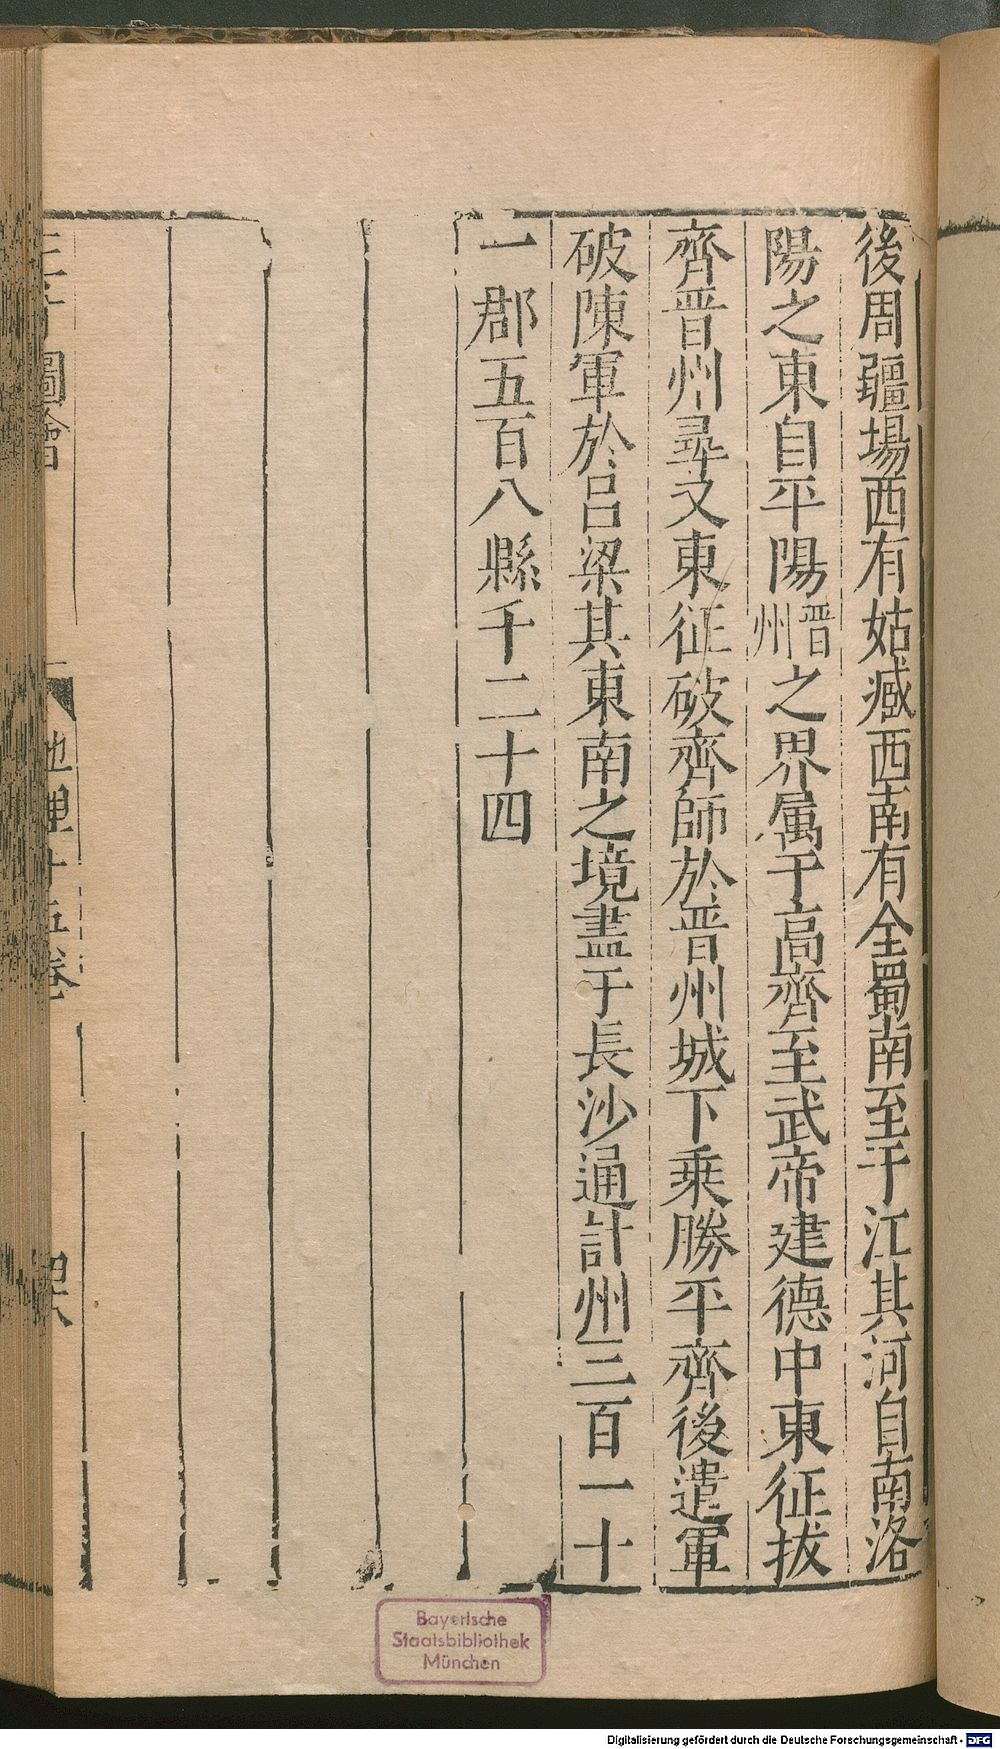 後周疆場西有姑臧西南有全蜀南至于江其河自南洛
陽之東自平陽晋州之界属于高齊至武帝建德中東征拔
齊晋州尋又東征破齊師於晋州城下乗勝平齊後遣軍
破陳軍於吕梁其東南之境盡于長沙通計州三百一十
一郡五百八縣千二十四
圖會
地理十五卷
Bayerische
Staatsbibliothek
München
Digitalisierung gefördert durch die Deutsche Forschungsgemeinschaft - DFG